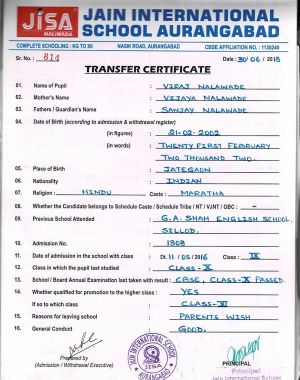 JISA
MALIWADA
JAIN INTERNATIONAL
SCHOOL AURANGABAD
COMPLETE SCHOOLING : KG TO XII NASIK ROAD, AURANGABAD CBSE AFFILIATION NO. : 1130249
Sr. No. : 814 Date : 30/06/2018
TRANSFER CERTIFICATE
01. Name of Pupil : VIRAJ NALAWADE
02. Mother's Name : VIJAYA NALAWADE
03. Fathers / Guardian's Name : SANJAY NALAWADE
04. Date of Birth (according to admission & withdrawal register)
(in figures) : 21-02-2002
(in words) : TWENTY FIRST FEBRUARY
TWO THOUSAND TWO.
05. Place of Birth : JATEGAON
06. Nationality : INDIAN
07. Religion : HINDU Caste : MARATHA
08. Whether the Candidate belongs to Schedule Caste / Schedule Tribe / NT / VJNT / OBC : -
09. Previous School Attended : G.A. SHAH ENGLISH SCHOOL,
SILLOD.
10. Admission No. : 1303
11. Date of admission in the school with class : Dt. 11/05/2016 Class : IX
12. Class in which the pupil last studied : CLASS-X
13. School / Board Annual Examination last taken with result : CBSE, CLASS-X PASSED.
14. Whether qualified for promotion to the higher class : YES
If so to which class : CLASS-XI
15. Reasons for leaving school : PARENTS WISH
16. General Conduct : GOOD.
Prepared by
(Admission / Withdrawal Executive)
JAIN INTERNATIONAL SCHOOL
JISA
AURANGABAD
PRINCIPAL
Principal
Jain International School